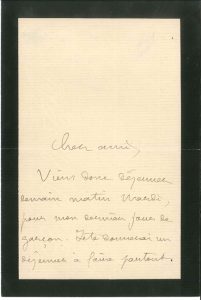 Cher ami,
Viens donc déjeuner
demain matin Mardi,
pour mon dernier jour de
garçon. Je te donnerai un
déjeuner à faire partout.